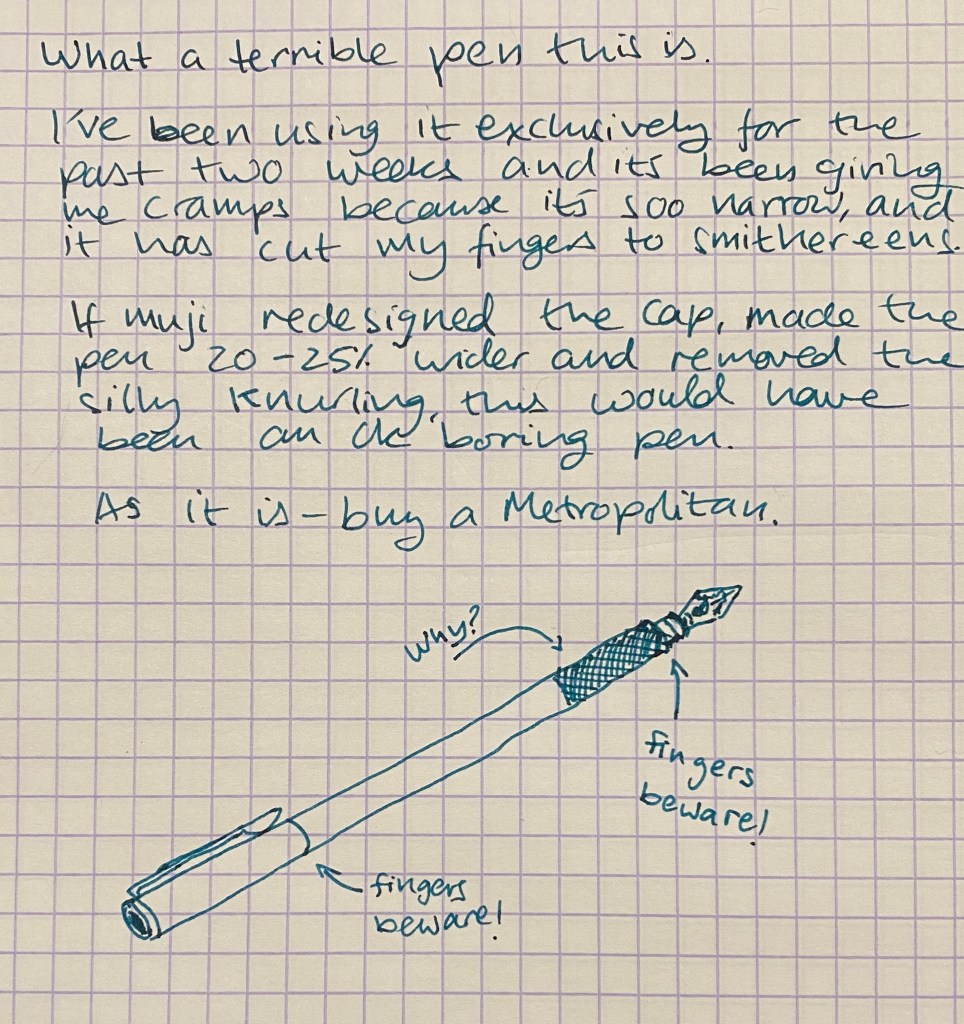 What a terrible pen this is.
I've been using it exclusively for the
past two weeks and its been giving
me cramps because it's soo narrow, and
it has cut my fingers to smithereens.
If muji redesigned the cap, made the
pen 20-25% wider and removed the
silly knurling, this would have
been an ok boring pen.
As it is - buy a Metropolitan.
Why?
fingers
beware!
fingers
beware!